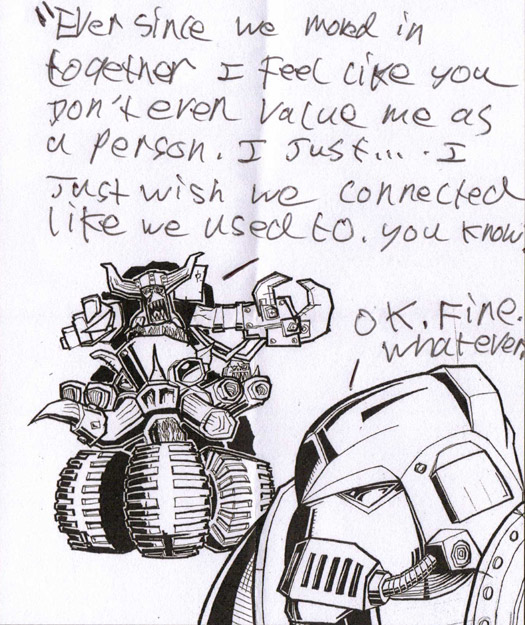 "Ever since we moved in
together I feel like you
Don't even value me as
a person. I just.... I
Just wish we connected
like we used to. you know
OK. Fine.
whatever